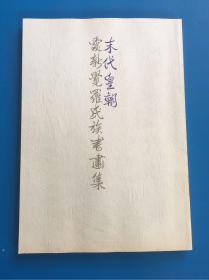 末代皇朝
爱新觉罗氏族书画集